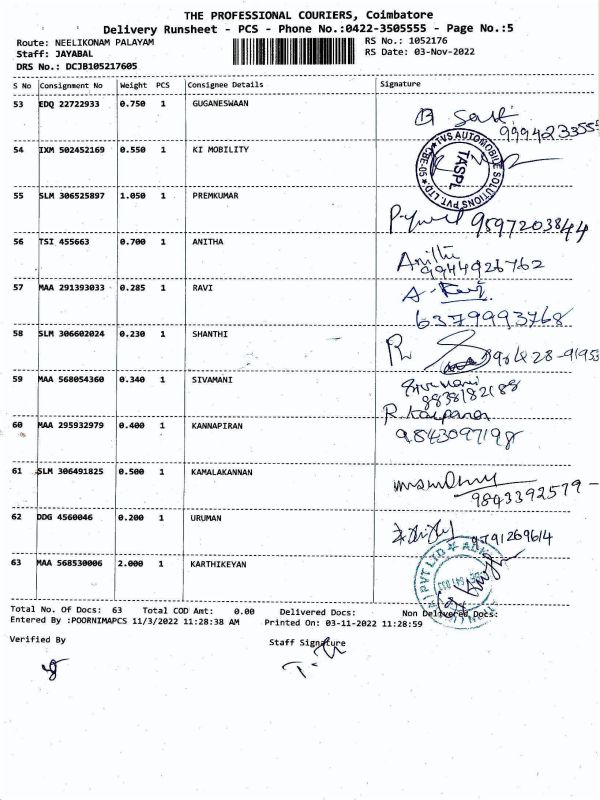 THE PROFESSIONAL COURIERS, Coimbatore
Delivery Runsheet - PCS - Phone No.:0422-3505555 - Page No.:5
Route: NEELIKONAM PALAYAM RS No.: 1052176
Staff: JAYABAL RS Date: 03-Nov-2022
DRS No.: DCJB105217605
S No Consignment No Weight PCS Consignee Details Signature
53 EDQ 22722933 0.750 1 GUGANESWAAN
54 IXM 502452169 0.550 1 KI MOBILITY
TVS AUTOMOBILE SOLUTIONS PVT. LTD ★ CBE-05 ★
TASPL
55 SLM 306525897 1.050 1 PREMKUMAR 9597203844
56 TSI 455663 0.700 1 ANITHA Anitha
9944926762
57 MAA 291393033 0.285 1 RAVI A. Ravi
6379993768
58 SLM 306602024 0.230 1 SHANTHI
59 MAA 568054360 0.340 1 SIVAMANI Sivamani
9838182188
60 MAA 295932979 0.400 1 KANNAPIRAN R. Kalpana
9843097198
61 SLM 306491825 0.500 1 KAMALAKANNAN
9843392579
62 DDG 4560046 0.200 1 URUMAN 9791269614
63 MAA 568530006 2.000 1 KARTHIKEYAN
PVT LTD ★
Total No. Of Docs: 63 Total COD Amt: 0.00 Delivered Docs: Non Delivered Docs:
Entered By :POORNIMAPCS 11/3/2022 11:28:38 AM Printed On: 03-11-2022 11:28:59
Verified By Staff Signature